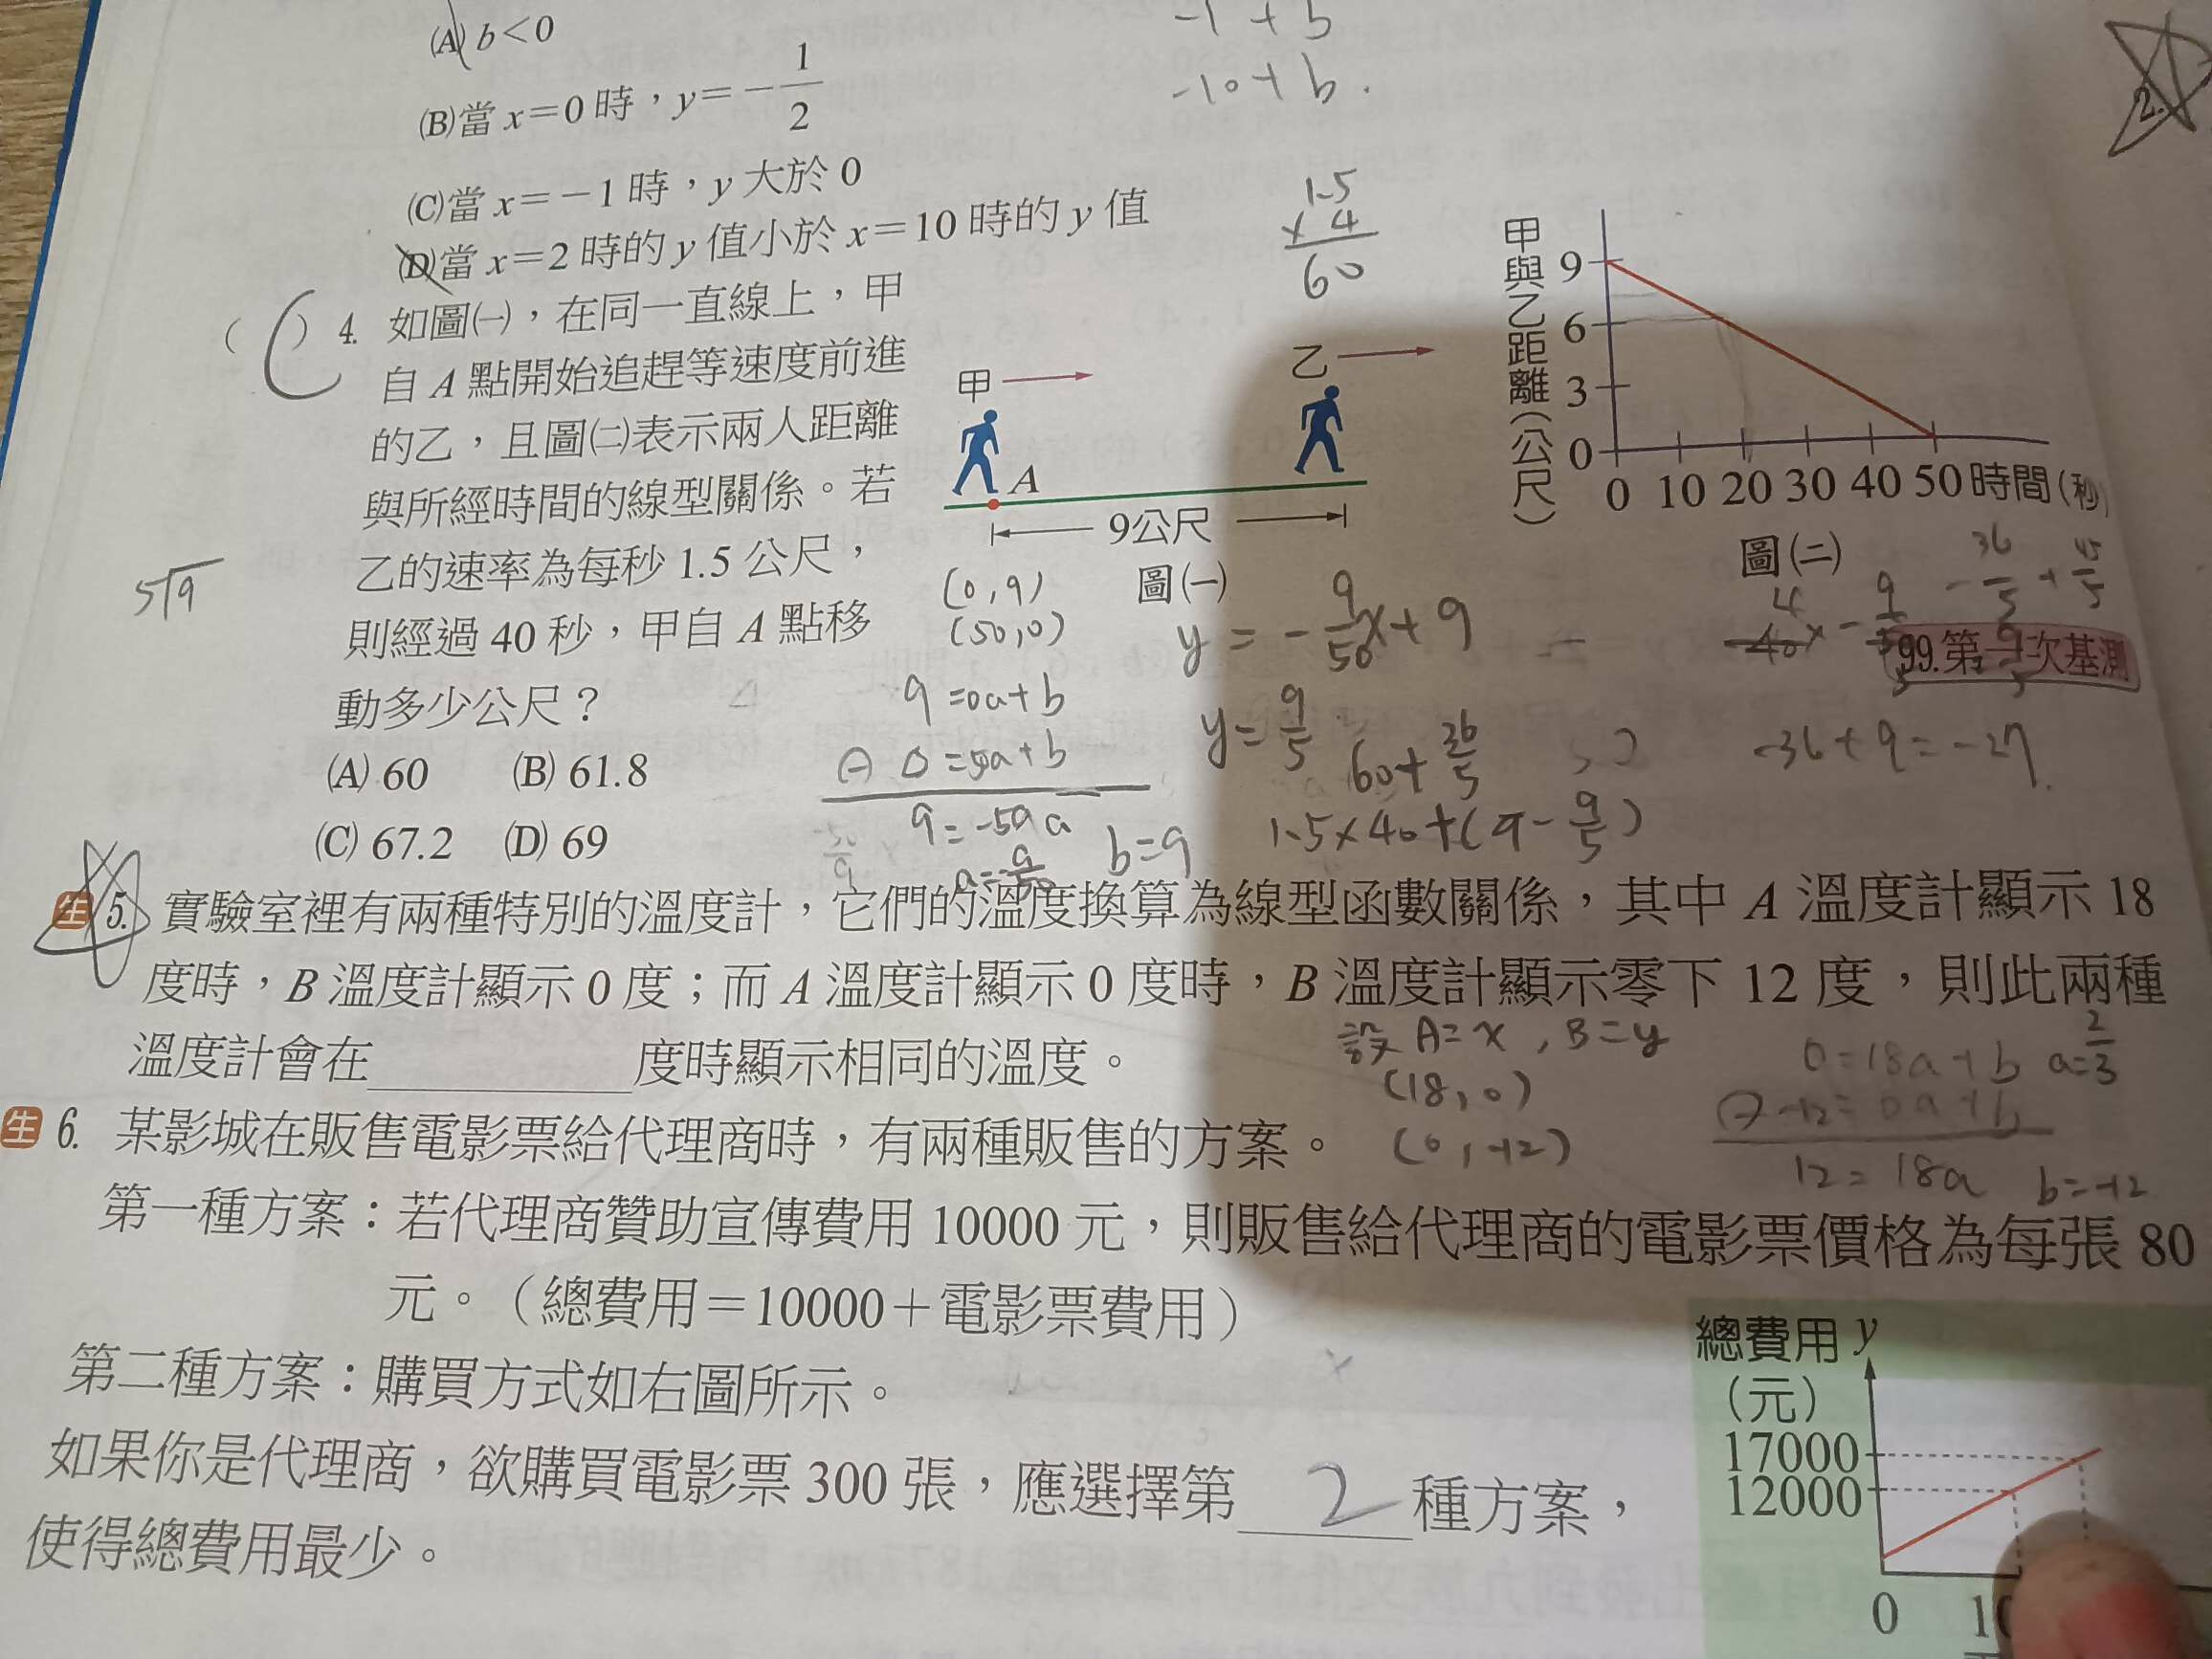 (A) b<0
(B)當 x=0 時，y=-1/2
(C)當 x=-1 時，y 大於 0
(D)當 x=2 時的 y 值小於 x=10 時的 y 值
-1+b
-10+b
1.5
×4
60
2.
( C ) 4. 如圖(一)，在同一直線上，甲
自 A 點開始追趕等速度前進
的乙，且圖(二)表示兩人距離
與所經時間的線型關係。若
乙的速率為每秒 1.5 公尺，
則經過 40 秒，甲自 A 點移
動多少公尺？
(A) 60 (B) 61.8
(C) 67.2 (D) 69
5√9
甲
乙
A
9公尺
圖(一)
甲與乙距離(公尺)
9
6
3
0
0 10 20 30 40 50 時間(秒)
圖(二)
99.第一次基測
(0,9)
(50,0)
y=-9/50x+9
9=0a+b
9=-50a
b=9
y=9/5
60+36/5
1.5×40+(9-9/5)
-36+9=-27
生 5. 實驗室裡有兩種特別的溫度計，它們的溫度換算為線型函數關係，其中 A 溫度計顯示 18
度時，B 溫度計顯示 0 度；而 A 溫度計顯示 0 度時，B 溫度計顯示零下 12 度，則此兩種
溫度計會在 度時顯示相同的溫度。
設 A=x , B=y
(18,0)
(0,-12)
0=18a+b a=2/3
-12=0a+b
12=18a b=-12
生 6. 某影城在販售電影票給代理商時，有兩種販售的方案。
第一種方案：若代理商贊助宣傳費用 10000 元，則販售給代理商的電影票價格為每張 80
元。（總費用=10000+電影票費用）
第二種方案：購買方式如右圖所示。
如果你是代理商，欲購買電影票 300 張，應選擇第 2 種方案，
使得總費用最少。
總費用 y
（元）
17000
12000
0